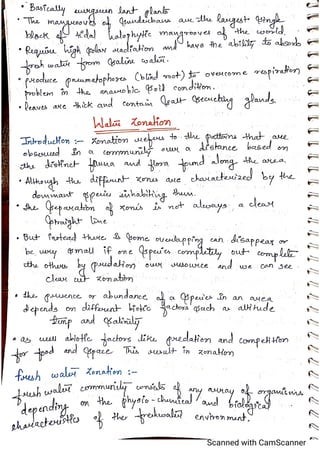 • Basically evergreen land plants
• The mangroves of Sundarbans are the largest single
block of tidal halophytic mangroves of the world.
• Require high solar radiation and have the ability to absorb
fresh water from saline water.
• produce pneumatophores (blind root) to overcome respiration
problem in the anaerobic soil condition.
• leaves are thick and contain salt secreting glands.
Water Zonation
Introduction :- Zonation refers to the patterns that are
observed in a community over a distance based on
the distinct fauna and flora found along the area.
• Although the different zones are characterized by the
dominant species inhabiting them.
• the separation of zones is not always a clear
straight line
• But instead there is some overlapping can disappear or
be very small if one species completely out complete
the others by predation over resource and we can see
clear cut zonation
• the presence or abundance of a species in an area
depends on different biotic factors such as altitude
temp and salinity
• as well abiotic factors like predation and competition
for food and space This result in zonation
fresh water zonation :-
fresh water community consists of any array of organisms
depending on the physio-chemical and biological
characteristics of the freshwater environment.
Scanned with CamScanner